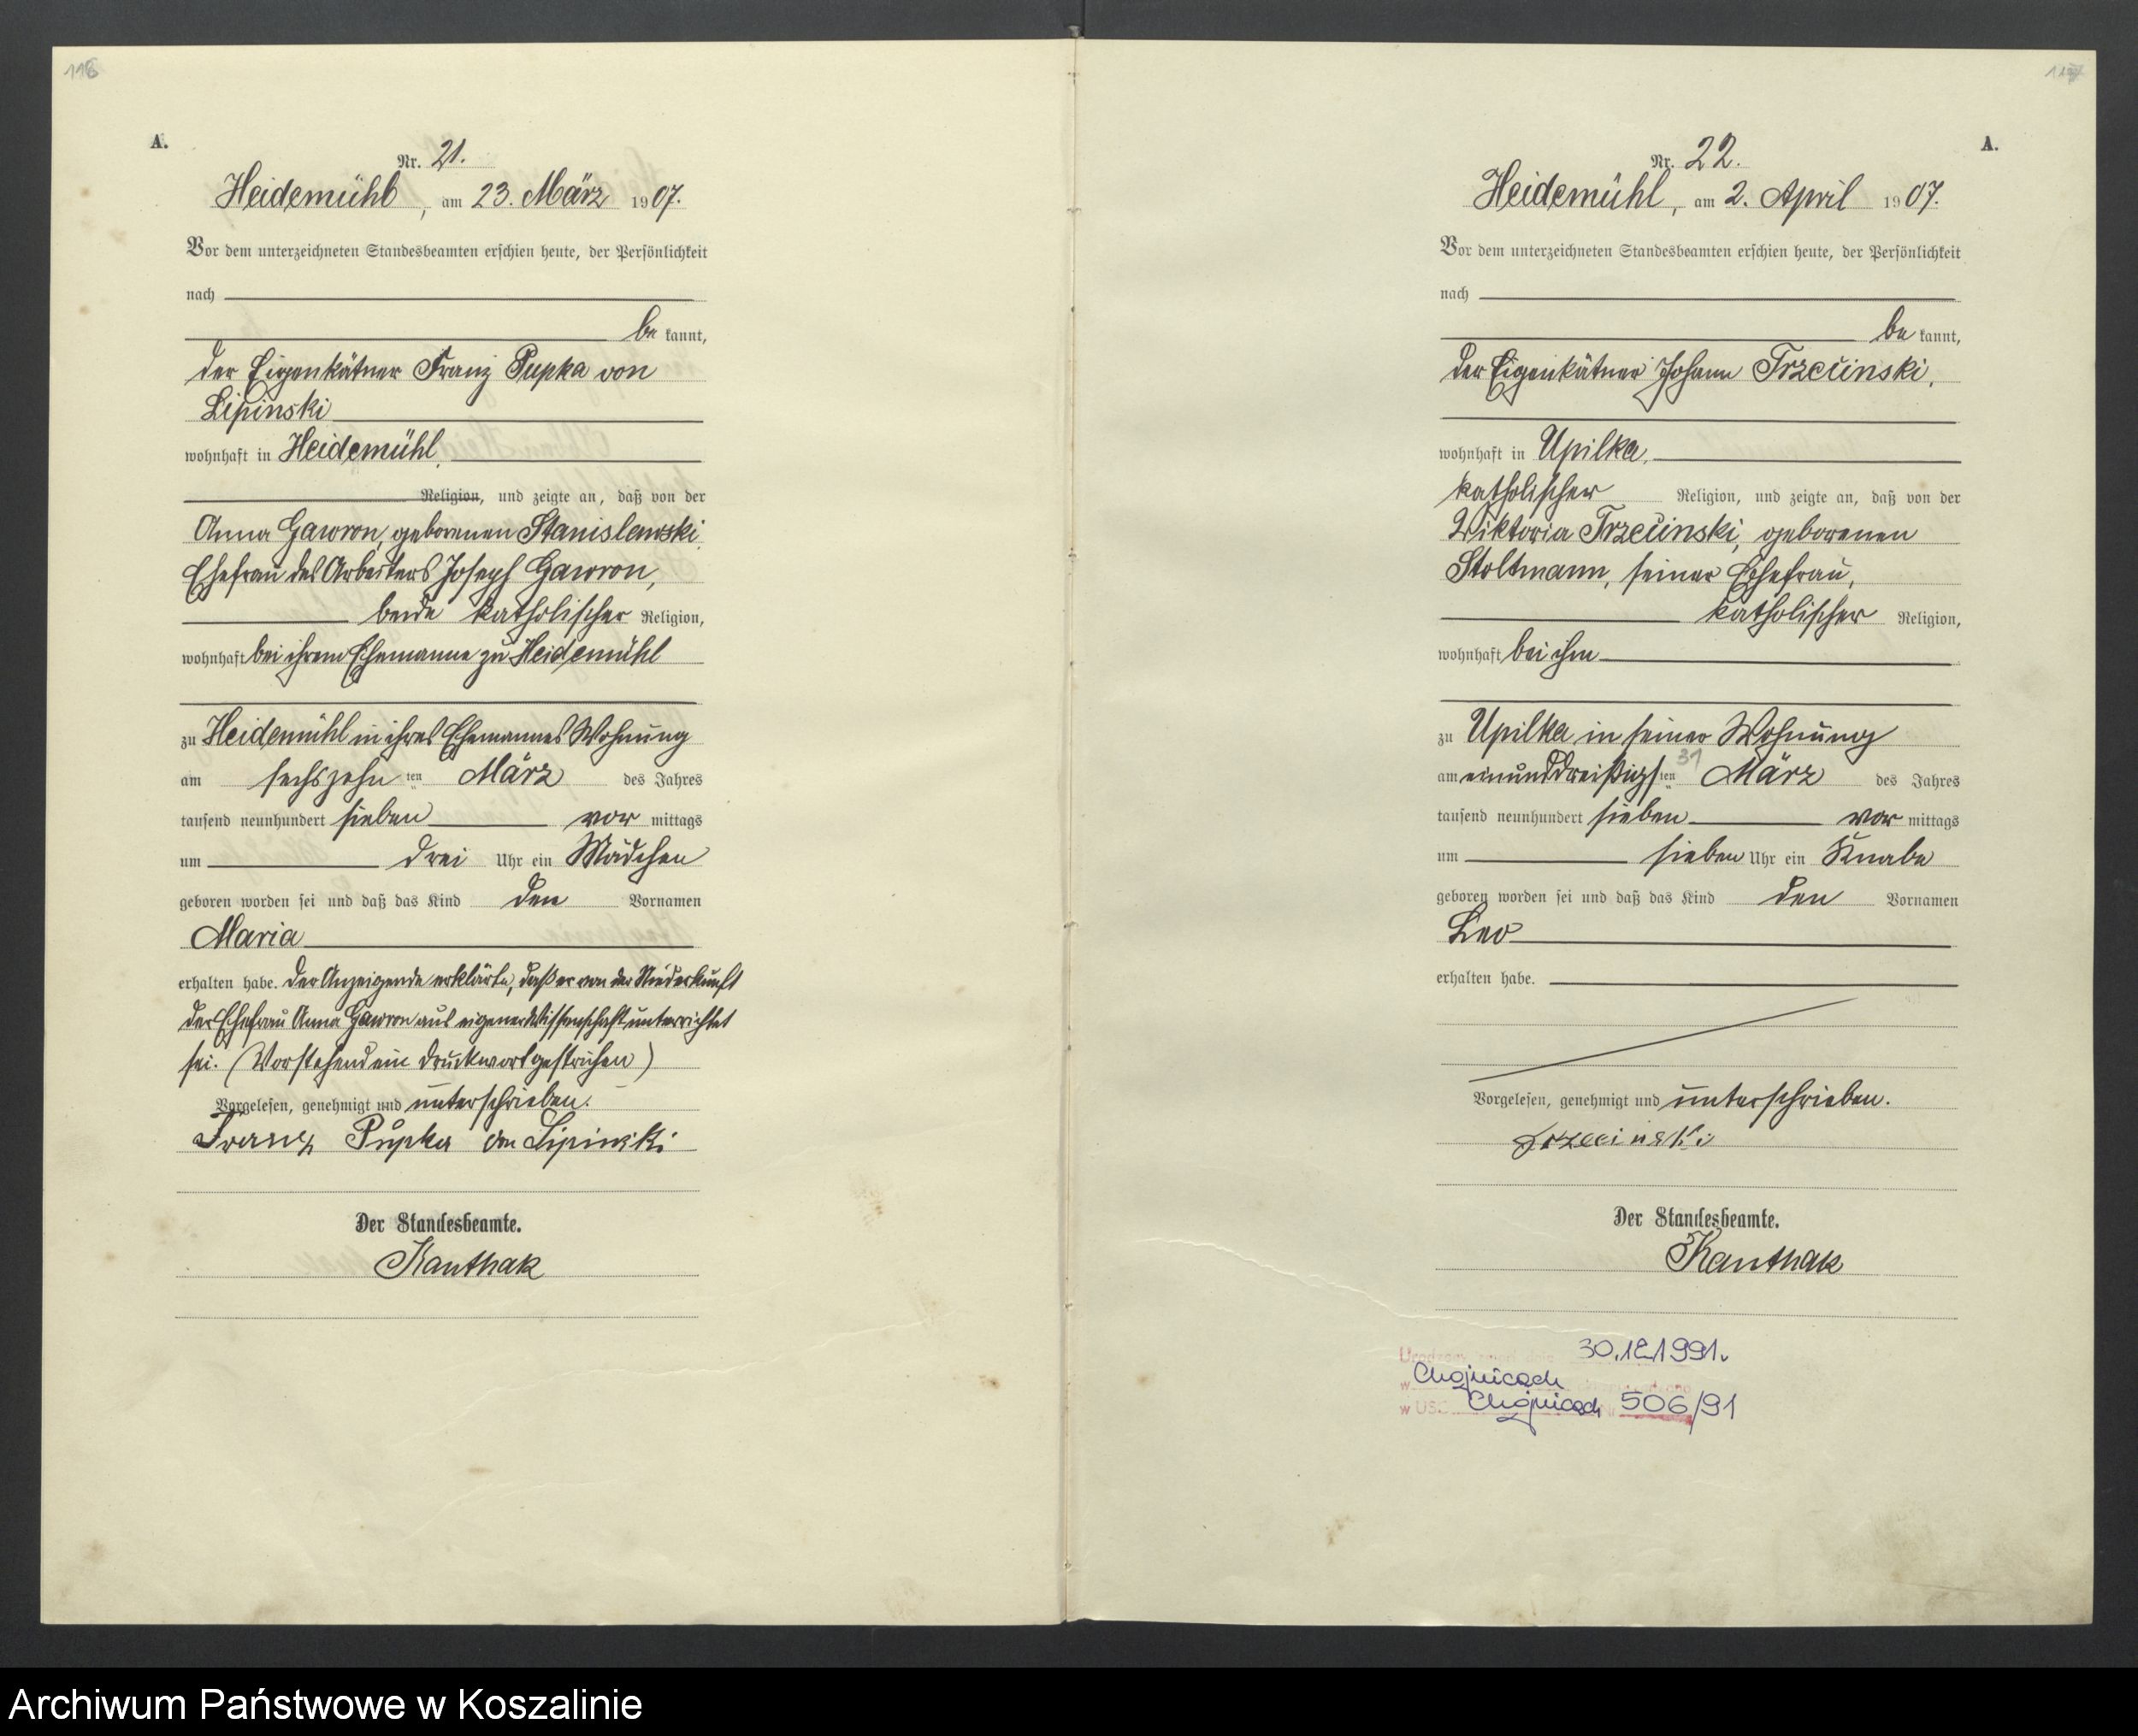 118
A.
Nr. 21.
Heidemühl, am 23. März 1907.
Vor dem unterzeichneten Standesbeamten erschien heute, der Persönlichkeit
nach
bekannt,
der Eigenkätner Franz Pupka von
Lipinski
wohnhaft in Heidemühl,
Religion, und zeigte an, daß von der
Anna Gawron, geborenen Stanislewski,
Ehefrau des Arbeiters Joseph Gawron,
beide katholischer Religion,
wohnhaft bei ihrem Ehemanne zu Heidemühl
zu Heidemühl in ihres Ehemannes Wohnung
am sechszehnten März des Jahres
tausend neunhundert sieben vormittags
um drei Uhr ein Mädchen
geboren worden sei und daß das Kind den Vornamen
Maria
erhalten habe. Der Anzeigende erklärte, daß er von der Niederkunft
der Ehefrau Anna Gawron aus eigener Wissenschaft unterrichtet
sei. (Vorstehend ein Druckwort gestrichen)
Vorgelesen, genehmigt und unterschrieben.
Franz Pupka von Lipinski
Der Standesbeamte.
Kanthak
117
A.
Nr. 22.
Heidemühl, am 2. April 1907.
Vor dem unterzeichneten Standesbeamten erschien heute, der Persönlichkeit
nach
bekannt,
der Eigenkätner Johann Trzecinski,
wohnhaft in Upilka,
katholischer Religion, und zeigte an, daß von der
Viktoria Trzecinski, geborenen
Stoltmann, seiner Ehefrau,
katholischer Religion,
wohnhaft bei ihm
zu Upilka in seiner Wohnung
31
am einunddreißigsten März des Jahres
tausend neunhundert sieben vormittags
um sieben Uhr ein Knabe
geboren worden sei und daß das Kind den Vornamen
Leo
erhalten habe.
Vorgelesen, genehmigt und unterschrieben.
Trzecinski
Der Standesbeamte.
Kanthak
30.12.1991.
w Chojnicach
w USC Chojnicach 506/91
Archiwum Państwowe w Koszalinie